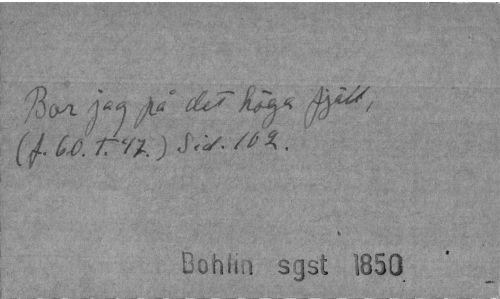 Bor jag på det höga fjäll,
(f. 60. T. 47.) Sid. 102.
Bohlin sgst 1850